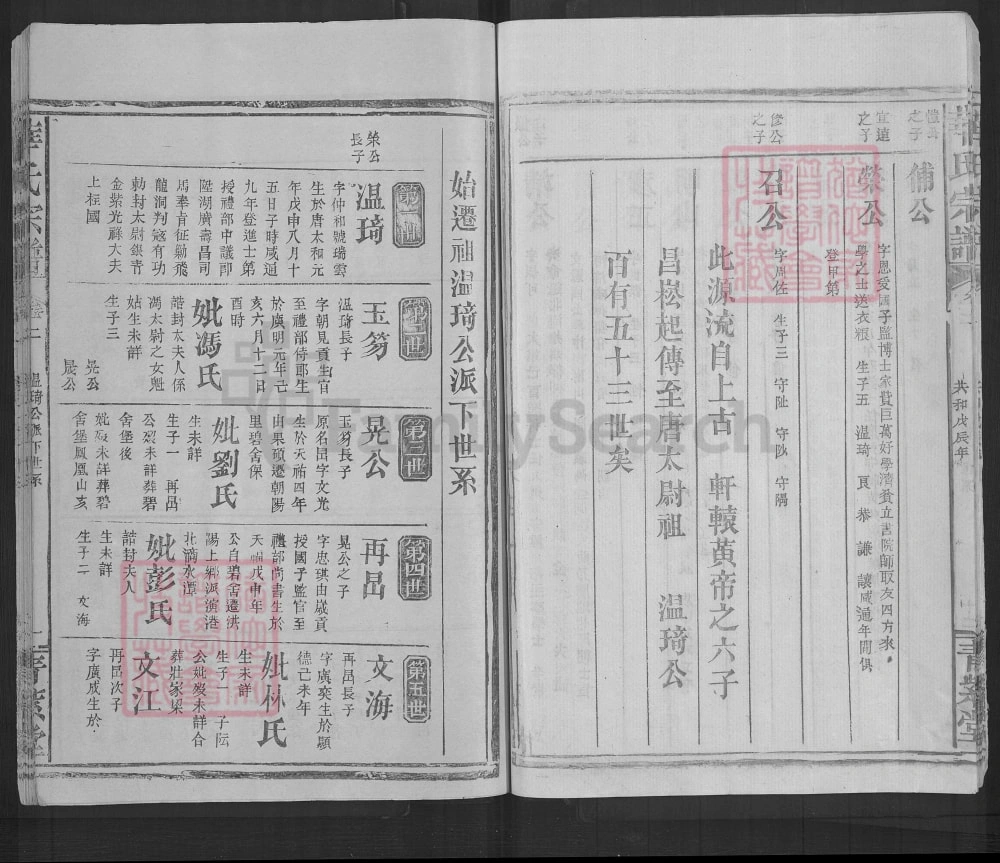 宗譜
共和戊辰年
青紫堂
之子
備公
宜遠
之子
榮公
字恩愛國子監博士家貲巨萬好學濟貧立書院師取友四方來
學之士送衣粮 生子五 温琦 頁 恭 謙 讓咸通年間俱
登甲第
俻公
之子
召公
字周佐 生子三 守阯 守防 守隅
此源流自上古 軒轅黃帝之六子
昌崧起傳至唐太尉祖 温琦公
百有五十三世矣
始遷祖温琦公派下世系
第一世
榮公
長子
温琦
字仲和號瑞雲
生於唐太和元
年戊申八月十
五日子時咸通
九年登進士第
授禮部中議郎
陞湖廣壽昌司
馬奉旨征勦飛
龍洞判寇有功
勅封太尉銀青
金紫光祿大夫
上柱國
第二世
玉笏
温琦長子
字朝見貢生官
至禮部侍郎生
於廣明元年己
亥六月十二日
酉時
妣馮氏
誥封太夫人係
馮太尉之女魁
姑生未詳
生子三
晃公
晸公
第三世
晃公
玉笏長子
原名囯字文光
生於天祐四年
由果碩遷朝陽
里碧舍保
妣劉氏
生未詳
生子一 再昌
公歿未詳葬碧
舍堡後
妣歿未詳葬碧
舍堡鳳凰山亥
第四世
再昌
晃公之子
字忠琪由歲貢
授國子監官至
禮部尚書生於
天福戊申年於
公自碧舍遷洪
陽上鄉派演港
北滴水潭
妣彭氏
誥封夫人
生未詳
生子二 文海
第五世
文海
再昌長子
字虞奕生於顯
德己未年
妣林氏
生未詳
生子一 子阮
公妣歿未詳合
葬壯家梁
文江
再昌次子
字廣成生於
温琦公派下世系
FamilySearch